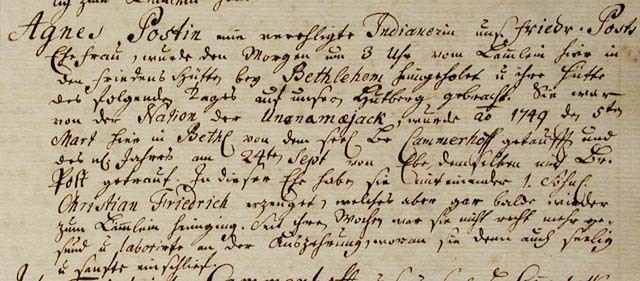 Agnes Postin eine verehligte Indianerin uns. Friedr. Posts
Ehefrau, wurde den Morgen um 3 Uhr vom Lämlein hier in
den Friedens Hütten bey Bethlehem heimgeholet u ihre Hütte
des folgenden Tages auf unsern Hutberg gebracht. Sie war
von der Nation der Unanamæjack, wurde ao 1749 den 5ten
Mart hier in Bethl von dem seel Br Cammerhoff getaufft und
des Jahres am 24ten Sept von Ebendemselben mit Br.
Post getraut. In dieser Ehe haben sie mit einander 1. Söhnl.
Christian Friedrich erzeuget, welches aber gar balde wieder
zum Lämlein heimging. Seit ihren Wochen war sie nicht recht mehr ge-
sund u laborirte an der Auszehrung, woran sie denn auch seelig
u sanfte einschlief.